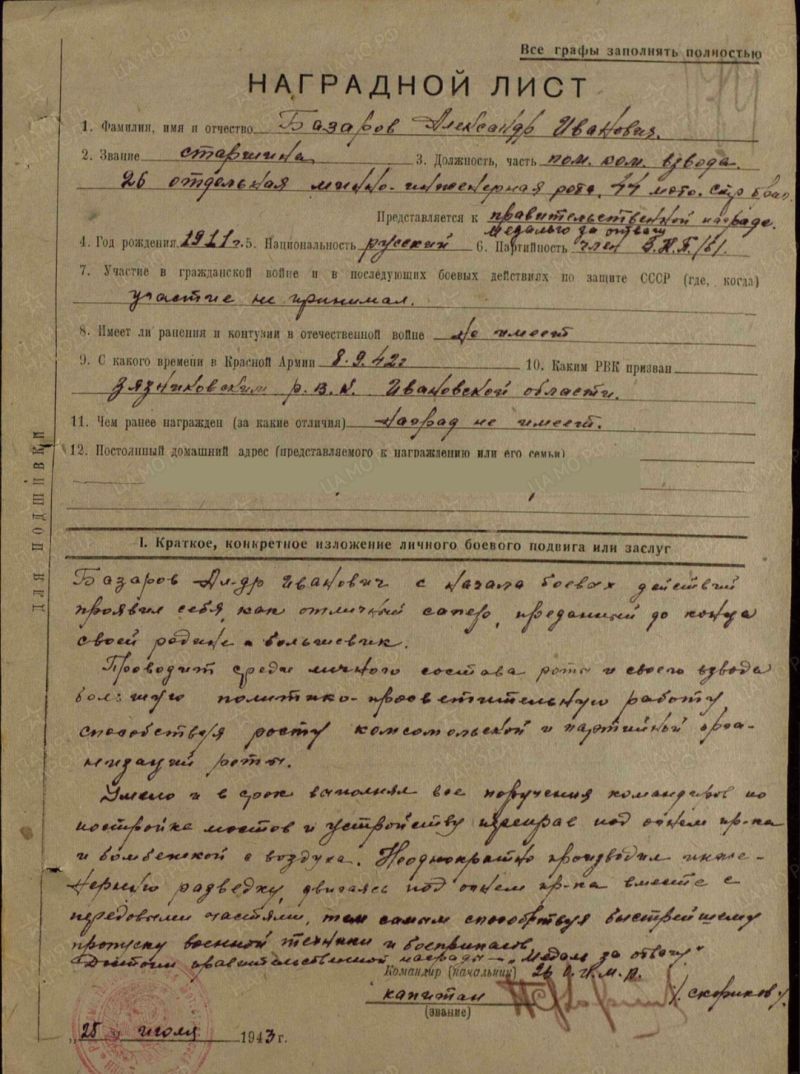 Все графы заполнять полностью
НАГРАДНОЙ ЛИСТ
1. Фамилия, имя и отчество Базаров Александр Иванович.
2. Звание старшина 3. Должность, часть пом. ком. взвода.
26 отдельная минно-инженерная рота, 44 мото. стр. брид.
Представляется к правительственной награде.
медалью за отвагу
4. Год рождения 1911 г. 5. Национальность русский 6. Партийность член В.К.П./б/.
7. Участие в гражданской войне и в последующих боевых действиях по защите СССР (где, когда)
участие не принимал.
8. Имеет ли ранения и контузии в отечественной войне не имеет
9. С какого времени в Красной Армии 8.9.42г 10. Каким РВК призван
Вязниковским р.В.К. Ивановской области.
11. Чем ранее награжден (за какие отличия) наград не имеет.
12. Постоянный домашний адрес (представляемого к награждению или его семьи)
ДЛЯ ПОДШИВКИ
I. Краткое, конкретное изложение личного боевого подвига или заслуг
Базаров Ал-др Иванович с начала боевых действий
проявил себя, как отличный сапер, преданный до конца
своей родине большевик.
Проводит среди личного состава роты и своего взвода
большую политико-просветительную работу
способствуя росту комсомольской и партийной орга-
низаций роты.
Умело и в срок выполнял все поручения командиров по
постройке мостов и устройству переправ под огнем пр-ка
и бомбежкой с воздуха. Неоднократно производил инже-
нерную разведку, двигаясь под огнем пр-ка вместе с
передовыми частями, тем самым способствуя быстрейшему
пропуску военной техники и боеприпасов.
Достоин правительственной награды – "Медаль за отвагу"
Командир (начальник) 26 О.И.М.Р.
капитан /Скориков/
(звание)
"28" июля 1943 г.